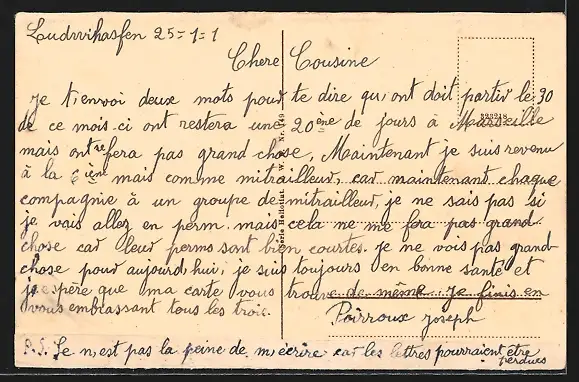 Ludwihasfen 25=1=1
Chere Cousine
Je t'envoi deux mots pour te dire qu'ont doit partir le 30
de ce mois-ci ont restera une 20ène de jours à Marseille
mais ont ne fera pas grand chose, Maintenant je suis revenu
à la 6ième mais comme mitrailleur, car maintenant chaque
compagnie à un groupe de mitrailleur, je ne sais pas si
je vais allez en perm. mais cela ne me fera pas grand
chose car leur perms sont bien courtes. je ne vois pas grand
chose pour aujourd'hui, je suis toujours en bonne santé et
j'espère que ma carte vous trouve de même. je finis en
vous embrassant tous les trois.
Poirroux Joseph
P.S. Se n'est pas la peine de m'écrire car les lettres pourraient être
perdues